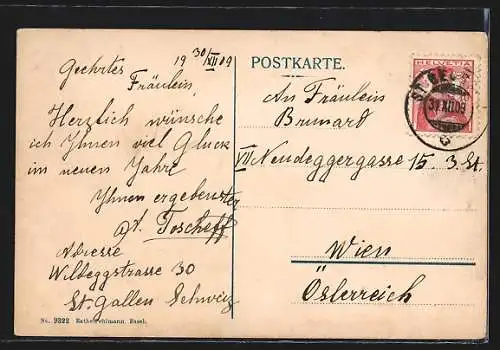 19 30/XII 09
Geehrtes
Fräulein,
Herzlich wünsche
ich Ihnen viel Glück
im neuen Jahre
Ihnen ergebenster
Toscheff
Adresse
Wilbeggstrasse 30
St. Gallen Schweiz
No. 9322 Rathe-Fehlmann, Basel.
POSTKARTE.
An Fräulein
Brunard
VII Neudeggergasse 15. 3. St.
Wien
Österreich
HELVETIA
31.XII.09